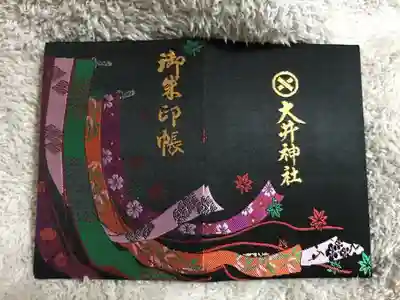 御朱印帳
大井神社